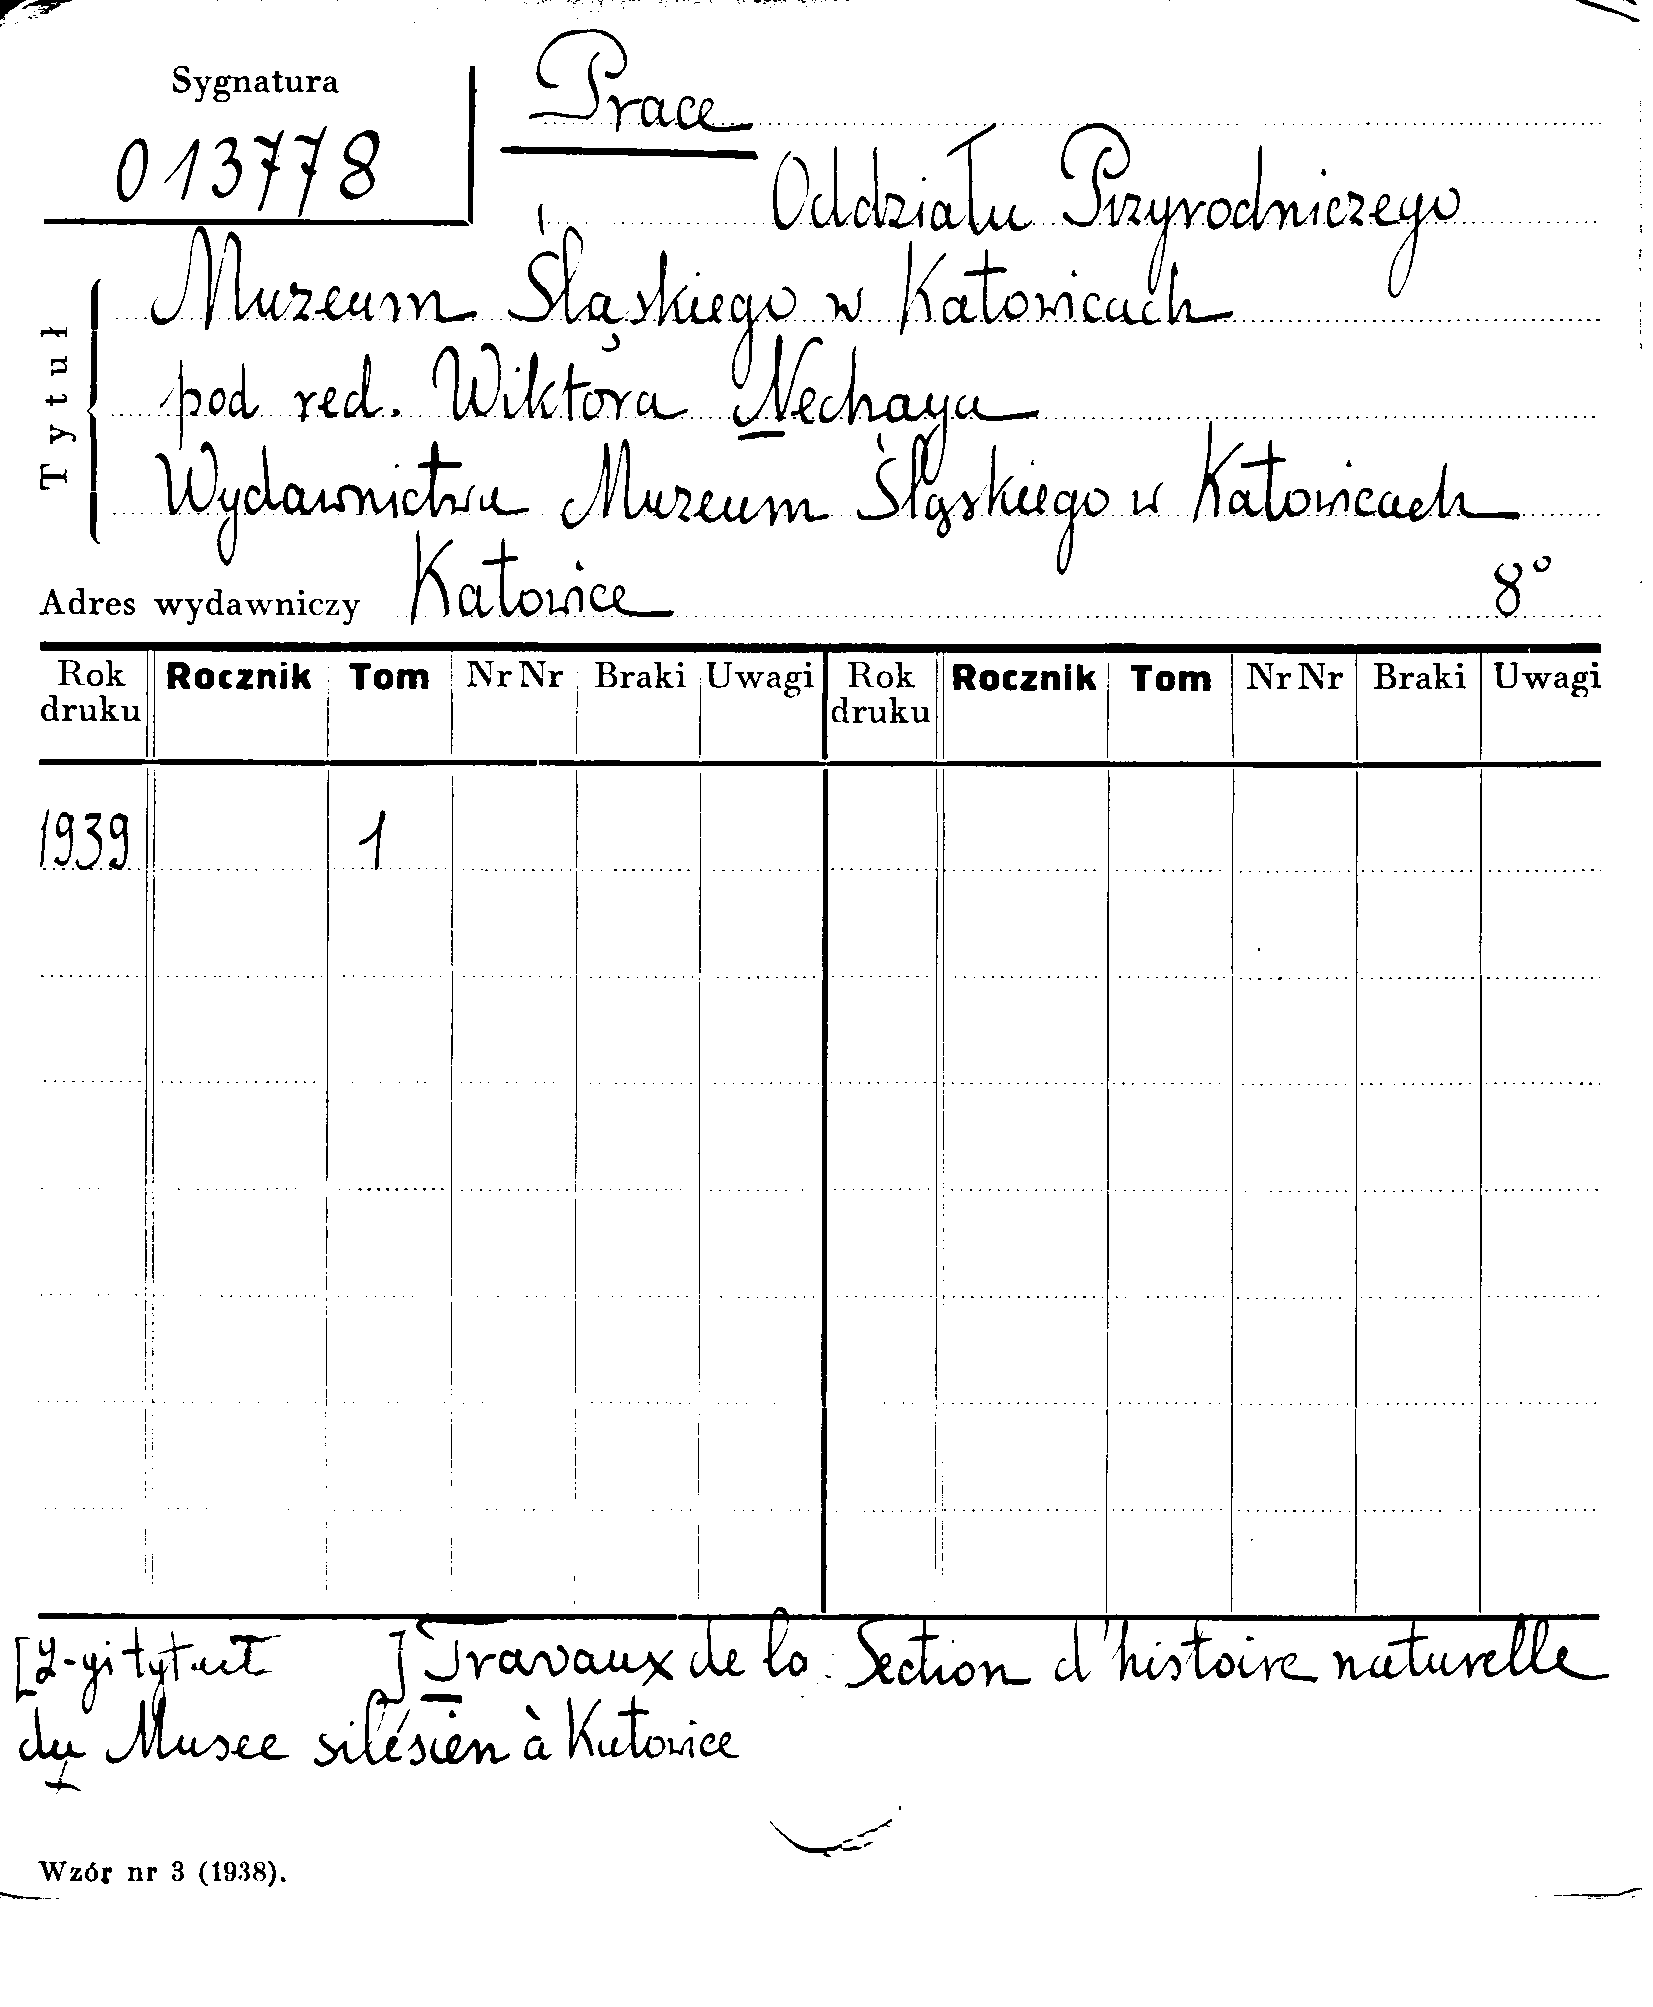 Sygnatura
013778
Prace
Oddziału Przyrodniczego
Muzeum Śląskiego w Katowicach
pod red. Wiktora Nechaya
Wydawnictwa Muzeum Śląskiego w Katowicach
Tytuł
Adres wydawniczy Katowice 8°
Rok druku Rocznik Tom Nr Nr Braki Uwagi Rok druku Rocznik Tom Nr Nr Braki Uwagi
1939 1
[2-gi tytuł ] Travaux de la Section d'histoire naturelle
du Musee silésien à Katowice
Wzór nr 3 (1938).